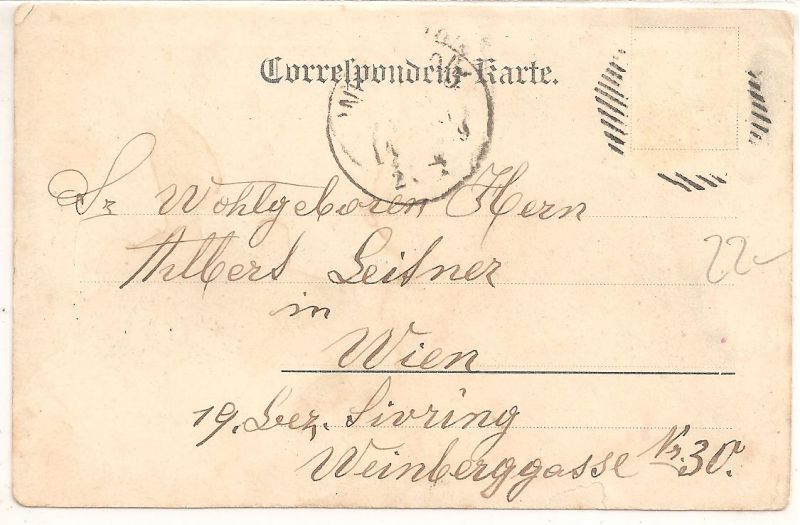 Correspondenz-Karte.
Sr Wohlgeboren Hern
Albert Leitner
in
Wien
19. Bez. Sivring
Weinberggasse Nr. 30.
22-